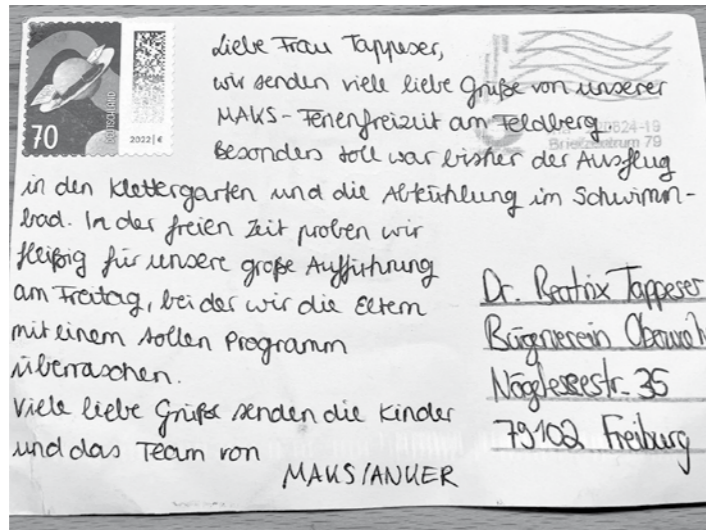 70
DEUTSCHLAND
2022 | €
Liebe Frau Tappeser,
wir senden viele liebe Grüße von unserer
MAKS-Ferienfreizeit am Feldberg.
Briefzentrum 79
Besonders toll war bisher der Ausflug
in den Klettergarten und die Abkühlung im Schwimm-
bad. In der freien Zeit proben wir
fleißig für unsere große Aufführung
am Freitag, bei der wir die Eltern
mit einem tollen Programm
überraschen.
Viele liebe Grüße senden die Kinder
und das Team von
MAKS/ANKER
Dr. Beatrix Tappeser
Bürgerverein
Nägeleseestr. 35
79102 Freiburg